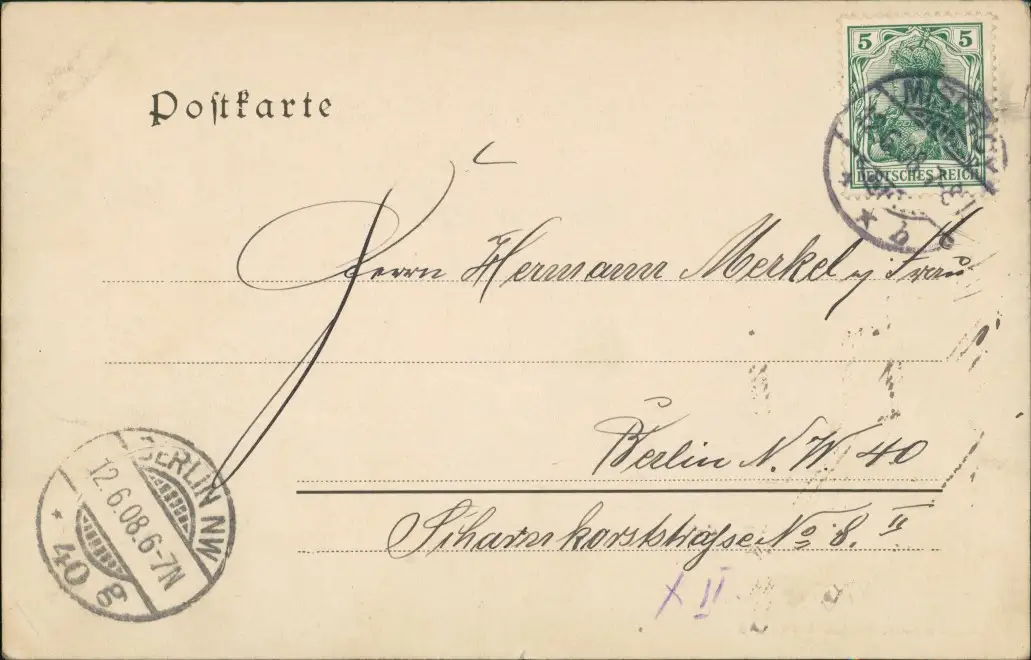 Postkarte
5 5
DEUTSCHES REICH
Herrn Hermann Merkel u. Frau
Berlin N.W. 40
Scharnhorststraße No 8. II
X II
BERLIN NW
12.6.08.6-7N
* 40 g